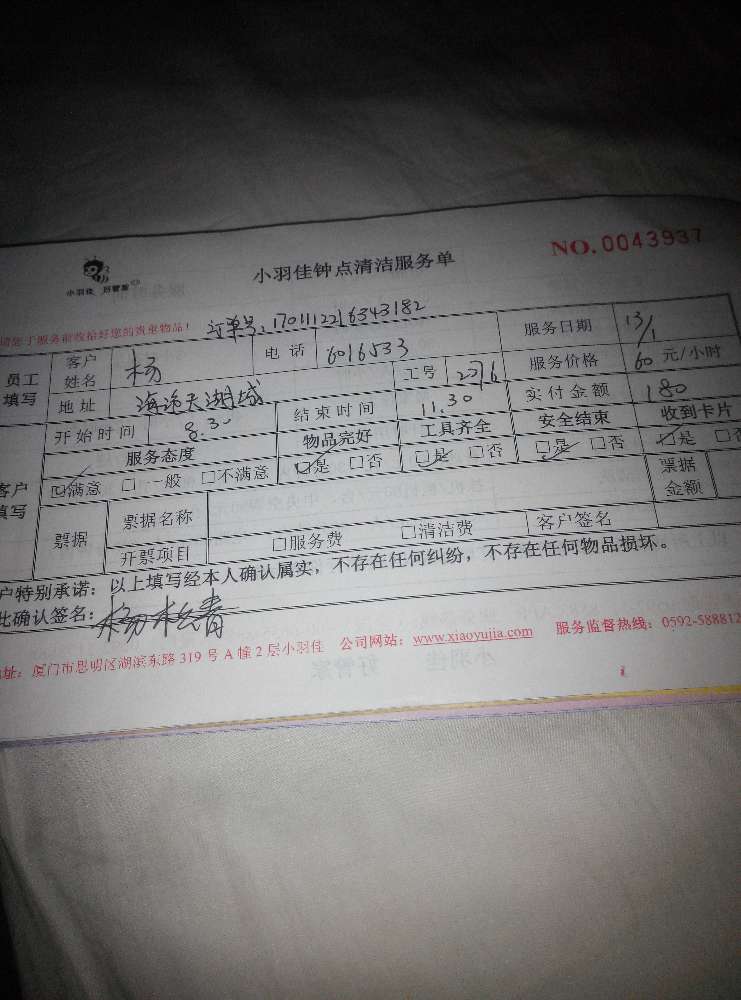 小羽佳 好管家
小羽佳钟点清洁服务单
NO.0043937
订单号:170111221634318​2
服务日期 13/1
员工填写 客户姓名 杨 电话 6016533 服务价格 60 元/小时
地址 天湖城 工号 2076 实付金额 180
开始时间 8.30 结束时间 11.30 安全结束 收到卡片
服务态度 物品完好 工具齐全
☑满意 □一般 □不满意 ☑是 □否 ☑是 □否 ☑是 □否 ☑是
票据 票据名称 票据金额
开票项目 □服务费 □清洁费 客户签名
户特别承诺：以上填写经本人确认属实，不存在任何纠纷，不存在任何物品损坏。
此确认签名：杨
址：厦门市思明区湖滨东路 319 号 A 幢 2 层小羽佳 公司网站：www.xiaoyujia.com 服务监督热线：0592-588812